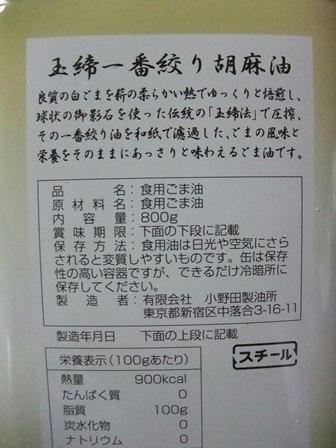 玉締一番絞り胡麻油
良質の白ごまを薪の柔らかい熱でゆっくりと焙煎し、
球状の御影石を使った伝統の「玉締法」で圧搾、
その一番絞り油を和紙で濾過した、ごまの風味と
栄養をそのままにあっさりと味わえるごま油です。
品名：食用ごま油
原材料名：食用ごま油
内容量：800g
賞味期限：下面の下段に記載
保存方法：食用油は日光や空気にさら
されると変質しやすいものです。缶は保存
性の高い容器ですが、できるだけ冷暗所に
保存してください。
製造者：有限会社 小野田製油所
東京都新宿区中落合3-16-11
製造年月日 下面の上段に記載
スチール
栄養表示(100gあたり)
熱量 900kcal
たんぱく質 0
脂質 100g
炭水化物 0
ナトリウム 0